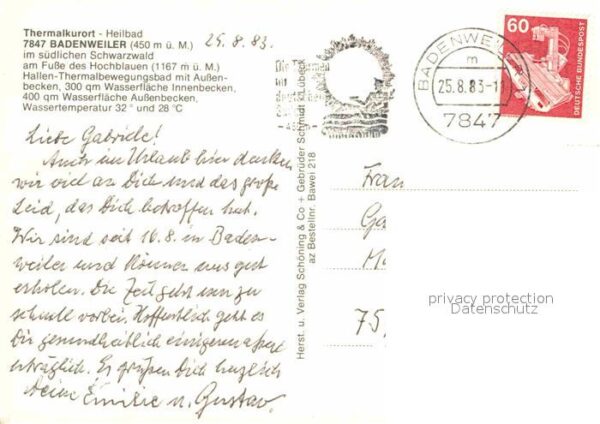 Thermalkurort - Heilbad
7847 BADENWEILER (450 m ü. M.)
im südlichen Schwarzwald
am Fuße des Hochblauen (1167 m ü. M.)
Hallen-Thermalbewegungsbad mit Außen-
becken, 300 qm Wasserfläche Innenbecken,
400 qm Wasserfläche Außenbecken,
Wassertemperatur 32° und 28°C
25.8.83.
Liebe Gabriele!
Auch im Urlaub hier denken
wir viel an Dich und das große
Leid, das Dich betroffen hat.
Wir sind seit 16.8. in Baden-
weiler und können uns gut
erholen. Die Zeit geht nur zu
schnell vorbei. Hoffentlich geht es
Dir gesundheitlich einigermaßen
erträglich. Es grüßen Dich herzlich
Deine Emilie u. Gustav.
Herst. u. Verlag Schöning & Co + Gebrüder Schmidt, Lübeck
az Bestellnr. Bawei 218
BADENWEILER
m
25.8.83-1
7847
60
DEUTSCHE BUNDESPOST
Frau
Ga
M
75
privacy protection
Datenschutz